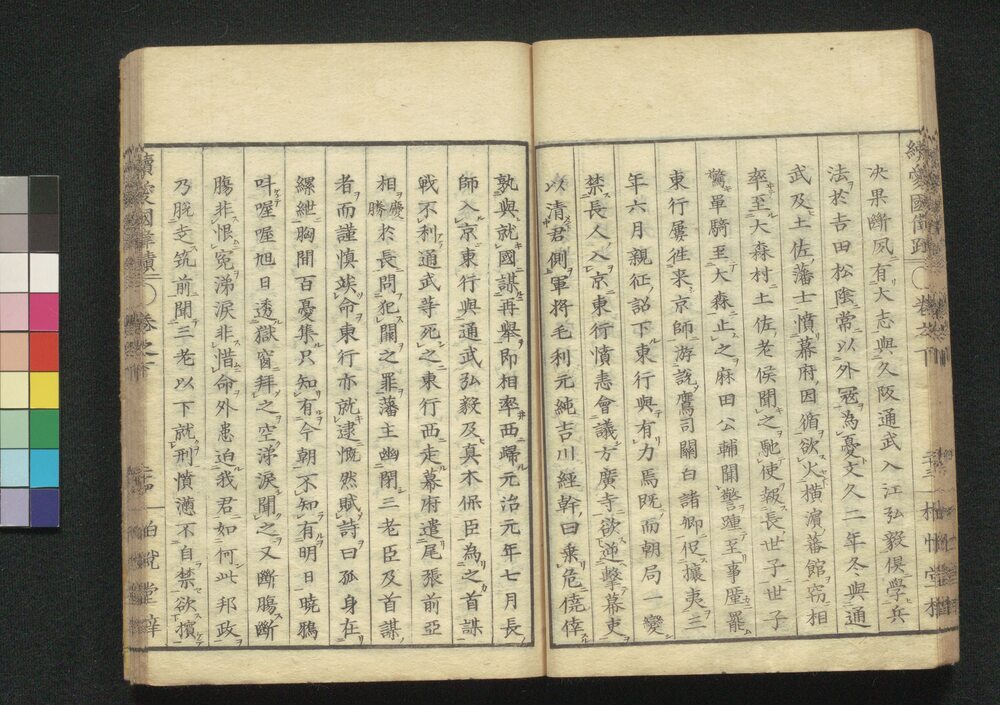 決果斷夙有大志與久阪通武入江弘毅俱學兵
法於吉田松陰常以外冦為憂文久二年冬與通
武及土佐藩士憤幕府因循欲火橫濱蕃館窃相
率至大森村土佐老侯聞之馳使報長世子世子
驚單騎至大森止之麻田公輔聞警踵至事廑罷
東行屢徃来京師游說鷹司關白諸卿促攘夷三
年六月親征詔下東行與有力焉既而朝局一變
禁長人入京東行憤恚會議方廣寺欲逆擊幕吏
以清君側軍将毛利元純吉川經幹曰乘危僥倖
孰與就國謀再舉即相率西歸元治元年七月長
師入京東行與通武弘毅及真木保臣為之首謀
戰不利通武等死之東行西走幕府遣尾張前亞
相慶勝於長問犯闕之罪藩主幽閉三老臣及首謀
者而謹慎竢命東行亦就逮慨然賦詩曰孤身在
縲紲胸間百憂集只知有今朝不知有明日曉鴉
呌喔喔旭日透獄窗拜之空涕淚聞之又斷膓斷
膓非恨冤涕淚非惜命外患迫我君如何此邦政
乃脫走筑前聞三老以下就刑憤懣不自禁欲擯
續愛國偉績